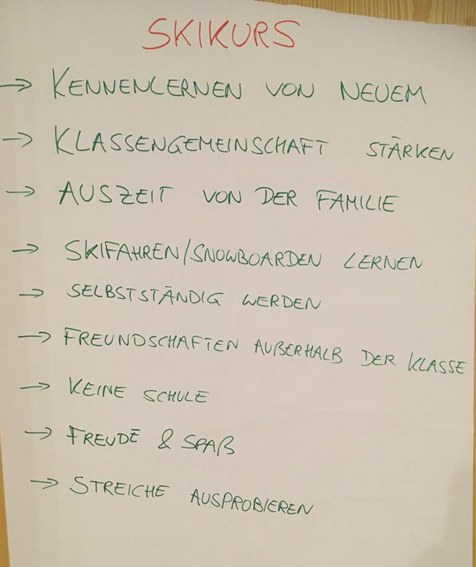 SKIKURS
→ KENNENLERNEN VON NEUEM
→ KLASSENGEMEINSCHAFT STÄRKEN
→ AUSZEIT VON DER FAMILIE
→ SKIFAHREN/SNOWBOARDEN LERNEN
→ SELBSTSTÄNDIG WERDEN
→ FREUNDSCHAFTEN AUßERHALB DER KLASSE
→ KEINE SCHULE
→ FREUDE & SPAß
→ STREICHE AUSPROBIEREN